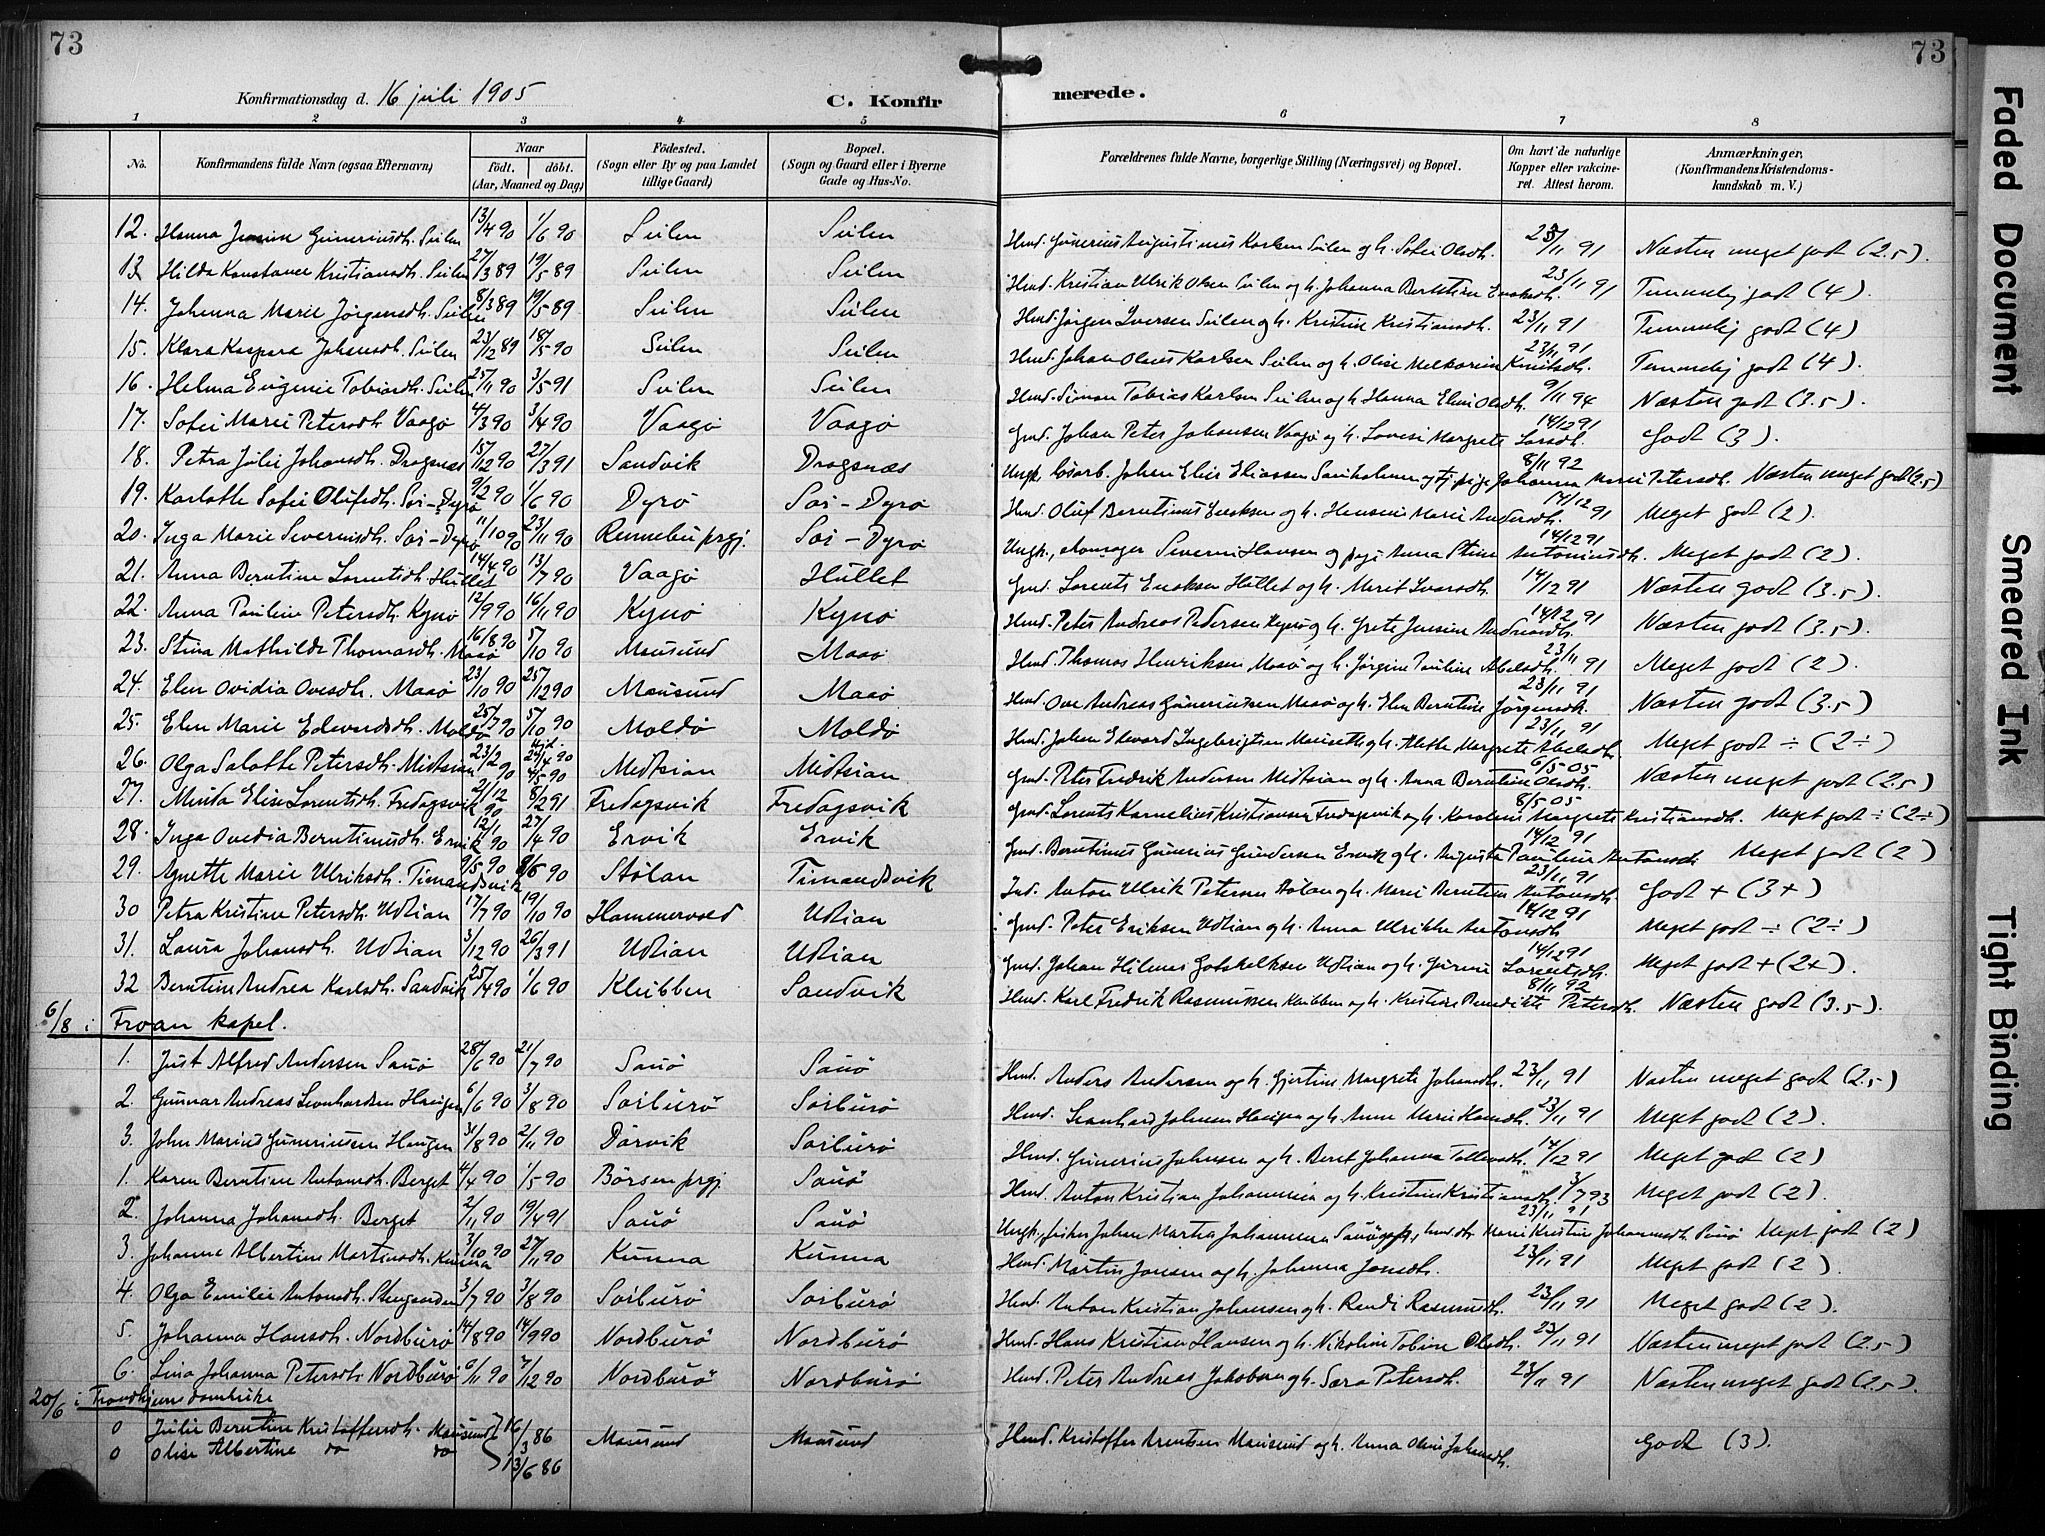 73
73
Konfirmationsdag d. 16 juli 1905
C. Konfirmerede.
1 2 3 4 5 6 7 8
No. Konfirmandens fulde Navn (ogsaa Efternavn) Naar født. døbt. (Aar, Maaned og Dag) Fødested. (Sogn eller By og paa Landet tillige Gaard) Bopæl. (Sogn og Gaard eller i Byerne Gade og Hus-No. Forældrenes fulde Navne, borgerlige Stilling (Næringsvei) og Bopæl. Om havt de naturlige Kopper eller vakcineret. Attest herom. Anmærkninger. (Konfirmandens Kristendomskundskab m. V.)
12. Hanna Guneriusdh. Sulen 13/4 90 1/6 90 Sulen Sulen Hmd. Gunerius Augustinus Karlsen Sulen og h. Sofie Olsdh. 23/11 91 Næsten meget godt (2.5).
13. Hilda Konstance Kristiansdh. Sulen 27/3 89 19/5 89 Sulen Sulen Hmd. Kristian Ulrik Olsen Sulen og h. Johanna Berntine 23/11 91 Temmelig godt (4).
14. Johanna Marie Jørgensdh. Sulen 8/3 89 19/5 89 Sulen Sulen Hmd. Jørgen Iversen Sulen og h. Kristine Kristiansdh. 23/11 91 Temmelig godt (4)
15. Klara Kaspara Johansdh. Sulen 23/12 89 18/5 90 Sulen Sulen Hmd. Johan Olaus Karlsen Sulen og h. Oline Knutsdh. 23/11 91 Temmelig godt (4)
16. Helma Eugenie Tobiasdh. Sulen 25/11 90 3/5 91 Sulen Sulen Hmd. Simon Tobias Karlsen Sulen og h. Hanna Elen Olsdh. 9/11 94 Næsten godt (3.5).
17. Sofie Marie Petersdh. Vaagø 4/3 90 3/4 90 Vaagø Vaagø Gmd. Johan Peter Johansen Vaagø og h. Lovise Margrete Larsdh. 14/12 91 Godt (3).
18. Petra Julie Johansdh. Dragsnæs 15/12 90 27/3 91 Sandvik Dragsnæs Ungk. Johan Elias Eliassen og Johanna Marie Petersdh. 8/11 92 Næsten meget godt (2.5)
19. Karlotte Sofie Olufsdh. Sør-Dyrø 9/2 90 1/6 90 Dyrø Sør-Dyrø Hmd. Oluf Berntinus Eriksen og h. Hansine Marie Andersdh. 14/12 91 Meget godt (2).
20. Inga Marie Severinsdh. Sør-Dyrø 11/10 90 23/11 90 Rennebu prgj. Sør-Dyrø Ungk. Severin Hansen og pige Anna Stine Antoniusdh. 14/12 91 Meget godt (2).
21. Anna Berntine Lorntsdh. Hullet 14/4 90 13/7 90 Vaagø Hullet Gmd. Lorents Eriksen Hullet og h. Merit Ivarsdh. 14/12 91 Næsten godt (3.5).
22. Anna Pauline Petersdh. Kynø 12/9 90 16/11 90 Kynø Kynø Hmd. Peter Andreas Pedersen Kynø og h. Grete Jensine Andreasdh. 14/12 91 Næsten godt (3.5).
23. Stina Mathilde Thomasdh. Maaø 16/8 90 5/10 90 Mausund Maaø Hmd. Thomas Henriksen Maaø og h. Jørgine Pauline Abelsdh. 23/11 91 Meget godt (2).
24. Elen Ovidia Ovesdh. Maaø 23/10 90 25/12 90 Mausund Maaø Hmd. Ove Andreas Guneriussen Maaø og h. Elen Berntine Jørgensdh. 23/11 91 Næsten godt (3.5)
25. Elen Marie Edvardsdh. Moldø 25/7 90 5/10 90 Moldø Moldø Hmd. Johan Edvard Ingebrigtsen og h. Mette Margrete Abelsdh. 23/11 91 Meget godt ÷ (2÷)
26. Olga Salotte Petersdh. Midtsian 23/2 90 24/4 90 4/5 90 Midtsian Midtsian Gmd. Peter Fredrik Andersen Midtsian og h. Anna Berntine Olsdh. 6/5 05 Næsten meget godt (2.5)
27. Minda Elise Lorntsdh. Fredagsvik 2/12 90 8/2 91 Fredagsvik Fredagsvik Gmd. Lorents Kornelius Kristiansen Fredagsvik og h. Margrete Kristiansdh. 8/5 05 Meget godt ÷ (2÷)
28. Inga Ovedia Berntinusdh. Ervik 12/1 90 27/4 90 Ervik Ervik Gmd. Berntinus Gunerius Gundersen Ervik og h. Augusta Pauline Antonsd. 14/12 91 Meget godt (2)
29. Agnette Marie Ulriksdh. Timandsvik 9/5 90 8/6 90 Stølan Timandsvik Ind. Anton Ulrik Petersen Stølan og h. Marie Berntine Antonsdh. 23/11 91 Godt + (3+)
30 Petra Kristine Petersdh. Udtian 17/7 90 19/10 90 Hammervold Udtian Gmd. Peter Eriksen Udtian og h. Anna Ulrikke Antonsdh 14/12 91 Meget godt ÷ (2÷)
31. Laura Johansdh. Udtian 3/12 90 26/3 91 Udtian Udtian Gmd. Johan Hilmes Gotskelksen Udtian og h. Gurine Lorentsdh. 14/12 91 Meget godt + (2+).
32 Berntine Andrea Karlsdh. Sandvik 25/4 90 1/6 90 Klubben Sandvik Hmd. Karl Fredrik Rasmussen Klubben og h. Kristine Benedikte Petersdh. 8/11 92 Næsten godt (3.5).
6/8 i Froan kapel.
1. Just Alfred Andersen Sauø 28/6 90 21/7 90 Sauø Sauø Hmd. Anders Andersen og h. Gjertine Margrete Johansdh. 23/11 91 Næsten meget godt (2.5)
2. Gunnar Andreas Leonhardsen Haugen 6/6 90 3/8 90 Sørburø Sørburø Hmd. Leonhard Johnsen Haugen og h. Anne Marie Hansdh. 23/11 91 Meget godt (2).
3. John Marius Gunerinssen Haugen 31/8 90 2/11 90 Dørvik Sørburø Hmd. Gunerius Johnsen og h. Beret Johanna Tollevsdh. 14/12 91 Meget godt (2)
1. Karen Berntine Antonsdh. Berget 4/4 90 1/5 90 Børsen prgj. Sauø Hmd. Anton Kristian Johannesen og h. Kristine Kristiansdh. 3/7 93 Meget godt (2).
2. Johanna Johansdh. Berget 2/11 90 19/4 91 Sauø Sauø Ungk., fisker Johan Martin Johannesen Sauø Marie Kristine Johannesdh. 23/11 91 Meget godt (2)
3. Johanne Albertine Martinsdh. Kunna 3/10 90 27/11 90 Kunna Kunna Hmd. Martin Jonsen og h. Johanna Jonsdh. 23/11 91 Meget godt (2).
4. Olga Emilie Antonsdh. 3/7 90 3/8 90 Sørburø Sørburø Hmd. Anton Kristian Johansen og h. Randi Rasmusdh. 23/11 91 Meget godt (2).
5. Johanna Hansdh. Nordburø 14/8 90 14/9 90 Nordburø Nordburø Hmd. Hans Kristian Hansen og h. Nikoline Tobine Olsdh. 23/11 91 Næsten meget godt (2.5)
6. Lina Johanna Petersdh. Nordburø 6/11 90 7/12 90 Nordburø Nordburø Hmd. Peter Andreas Jakobsen og h. Sara Petersdh. 23/11 91 Næsten meget godt (2.5).
20/6 i Trondhjems domkirke
0 Julie Berntine Kristoffersdh. Mausund 16/3 86 Mausund Mausund Hmd. Kristoffer Arentsen Mausund og h. Anna Oline Johansdh. Godt (3).
0 Olise Albertine do do 13/6 86
Faded Document
Smeared Ink
Tight Binding